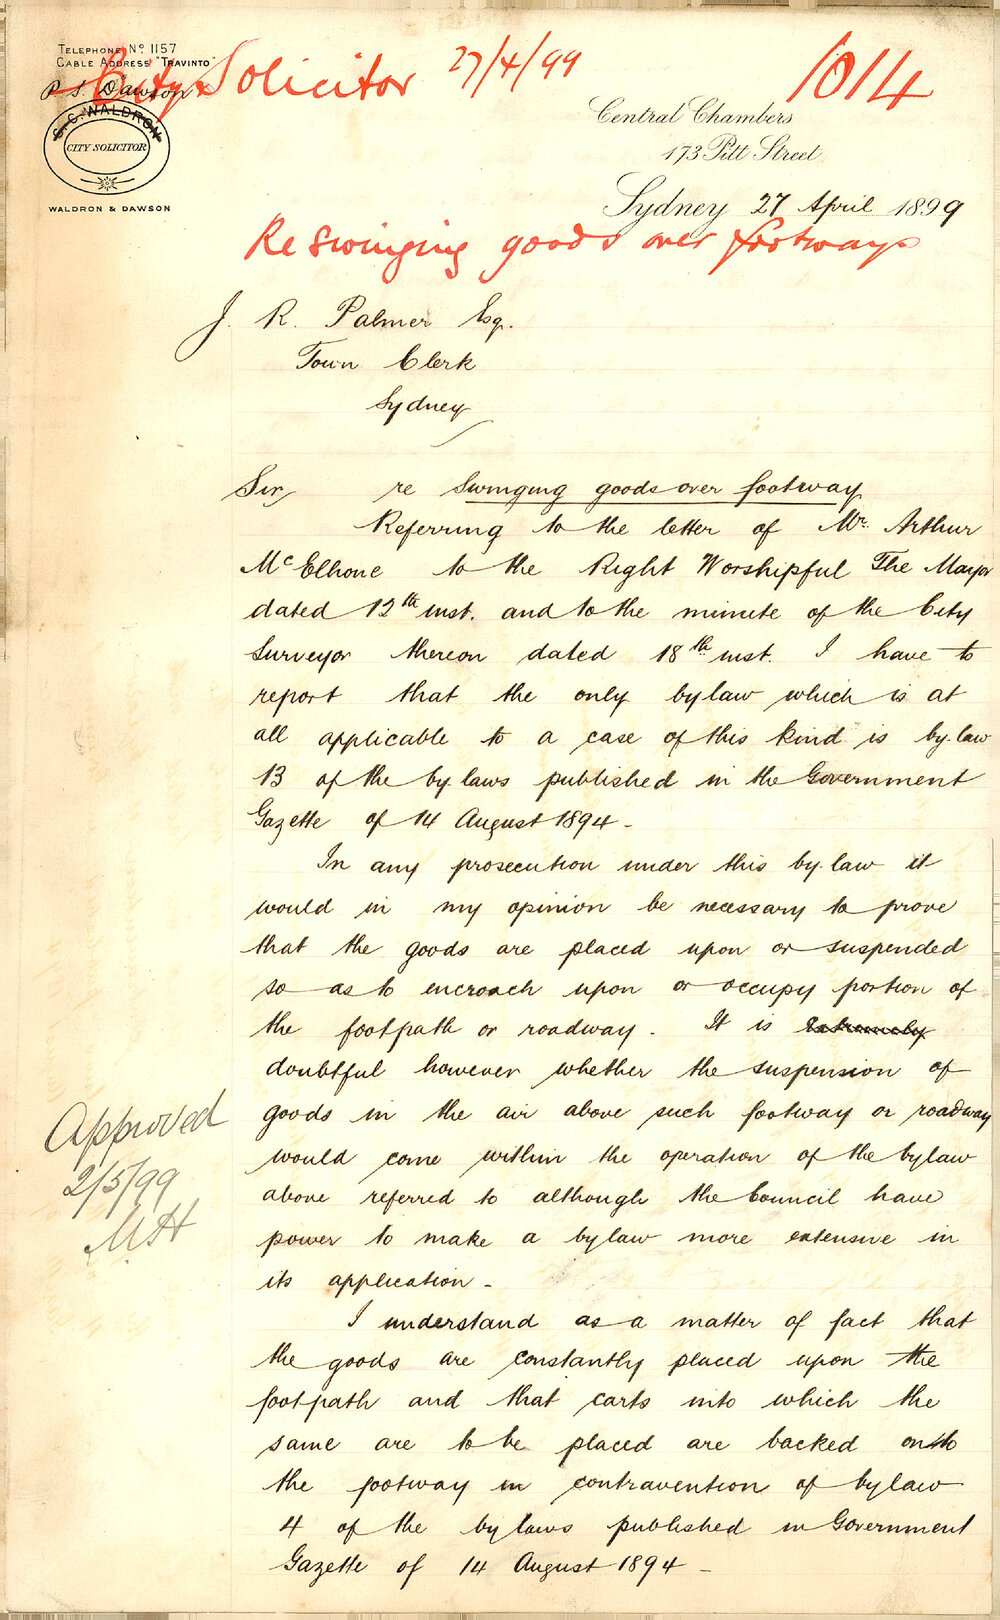 TELEPHONE No 1157
CABLE ADDRESS "TRAVINTO"
City Solicitor 27/4/99 1014
P S. Dawson
C. C. WALDRON
CITY SOLICITOR
WALDRON & DAWSON
Central Chambers
173 Pitt Street
Sydney 27 April 1899
Re Swinging goods over footways
J. R. Palmer Esq.
Town Clerk
Sydney
Sir, re Swinging goods over footway
Referring to the letter of Mr. Arthur
McElhone to the Right Worshipful The Mayor
dated 12th inst. and to the minute of the City
Surveyor thereon dated 18th inst. I have to
report that the only bylaw which is at
all applicable to a case of this kind is by.law
13 of the by.laws published in the Government
Gazette of 14 August 1894 -
In any prosecution under this by.law it
would in my opinion be necessary to prove
that the goods are placed upon or suspended
so as to encroach upon or occupy portion of
the footpath or roadway. It is extremely
doubtful however whether the suspension of
goods in the air above such footway or roadway
would come within the operation of the bylaw
above referred to although the Council have
power to make a bylaw more extensive in
its application -
Approved
2/5/99
MH
I understand as a matter of fact that
the goods are constantly placed upon the
footpath and that carts into which the
same are to be placed are backed onto
the footway in contravention of bylaw
4 of the bylaws published in Government
Gazette of 14 August 1894 -